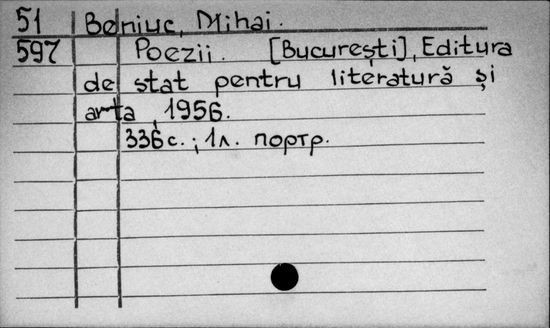 51 Beniuc, Mihai.
597 Poezii. [București], Editura
de stat pentru literatură și
arta, 1956.
336 с.; 1 л. портр.